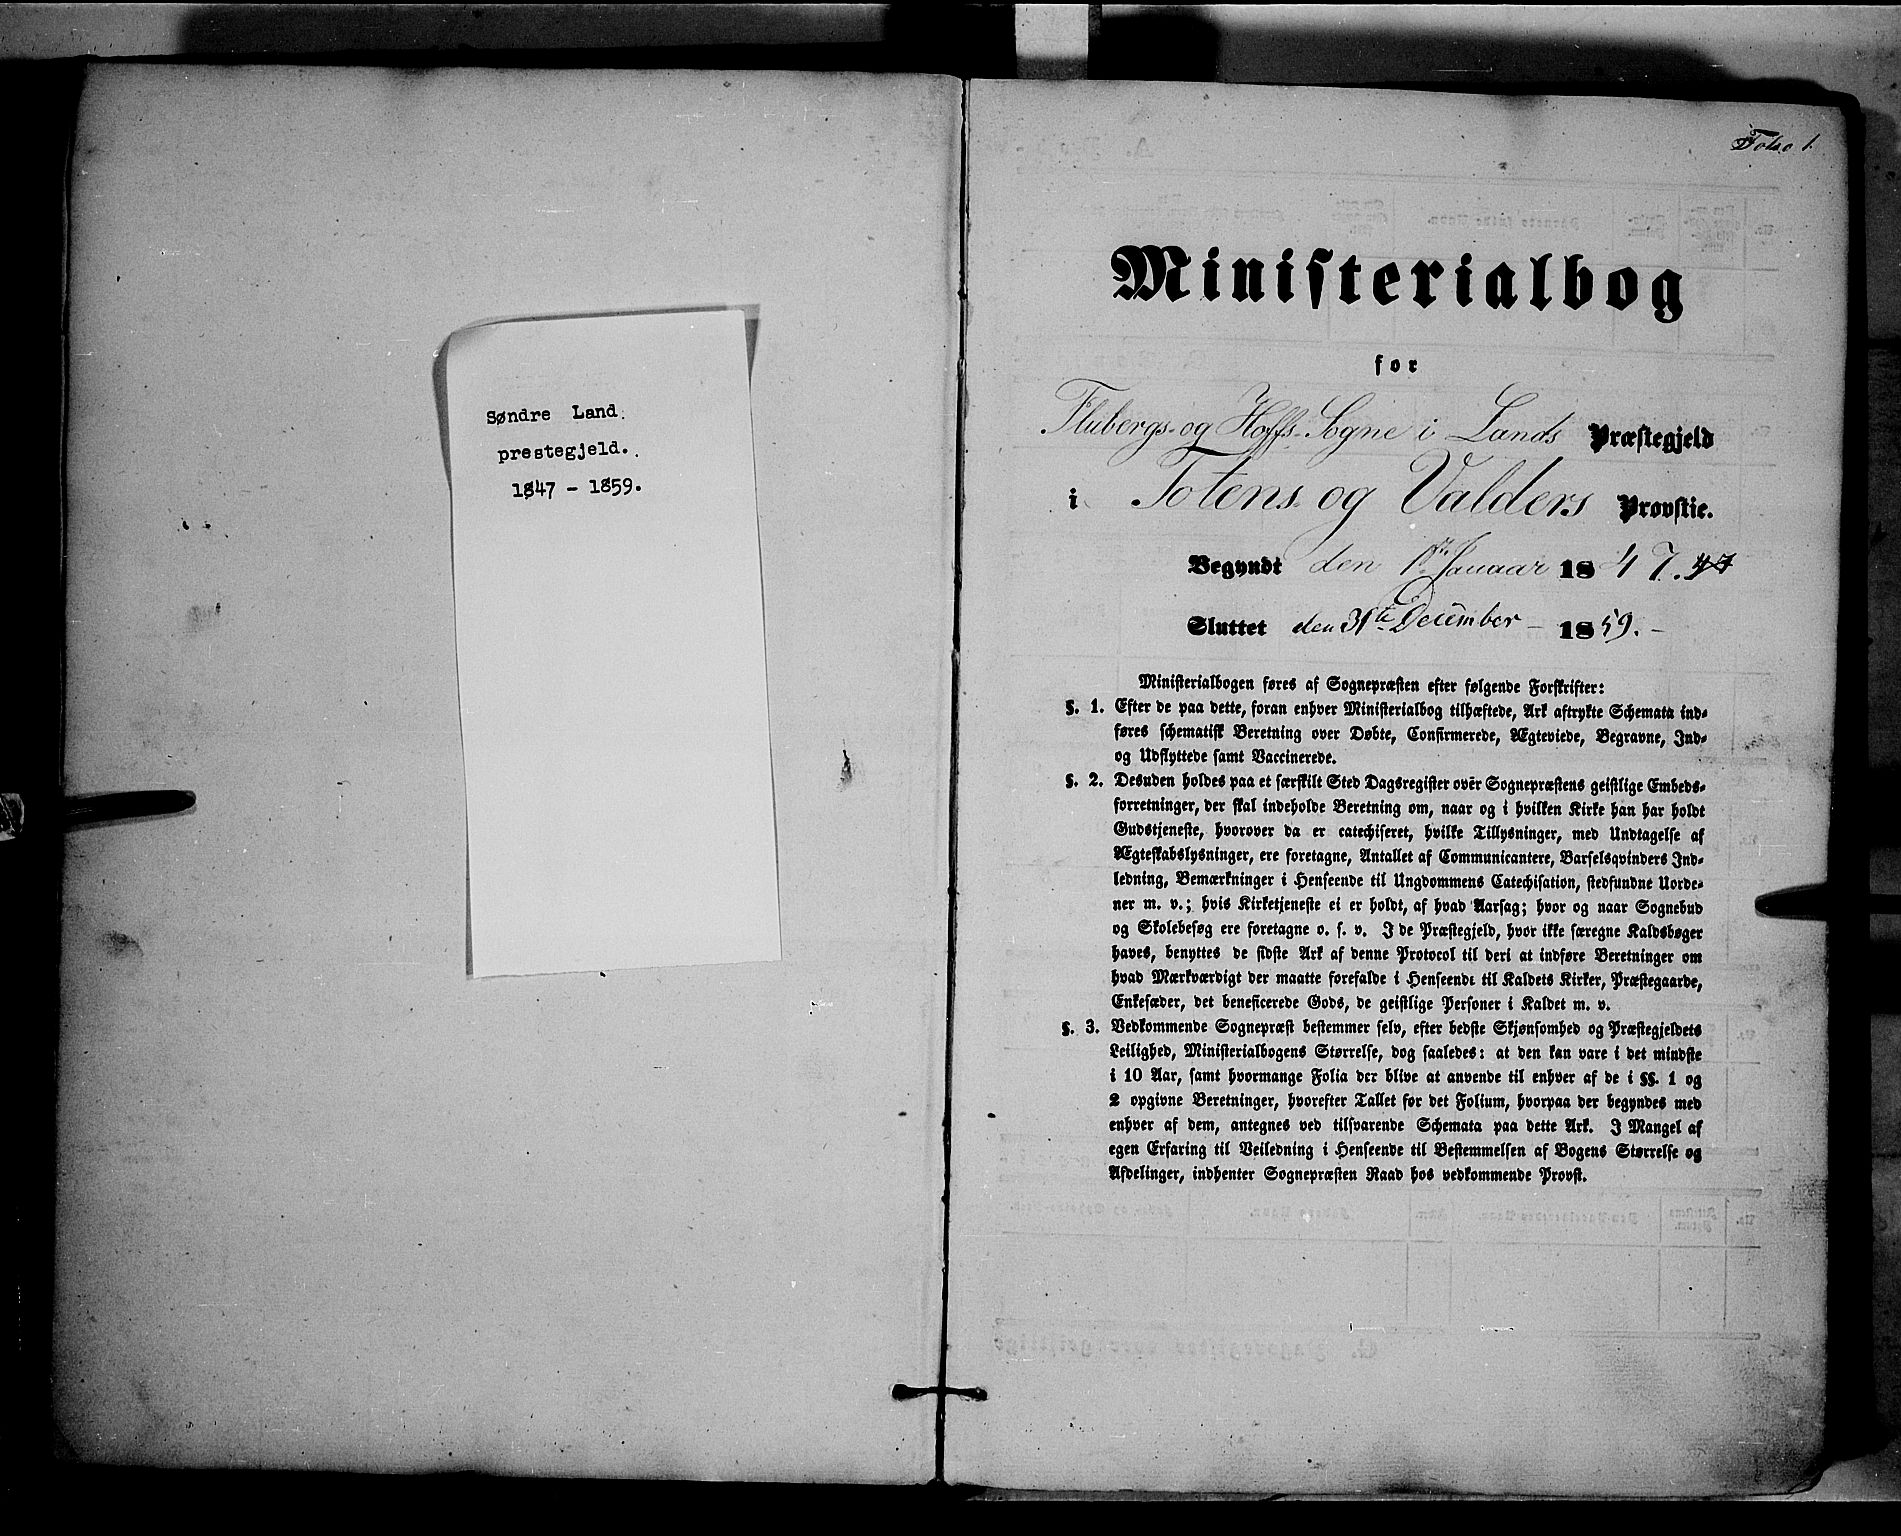 Søndre Land.
prestegjeld.
1847 - 1859.
Folio 1.
Ministerialbog
for
Flubergs- og Hoffs- Sogne i Lands Præstegjeld
i Totens- og Valders Provstie.
Begyndt den 1ste Januar 1847. 47
Sluttet den 31te December - 1859. -
Ministerialbogen føres af Sognepræsten efter følgende Forskrifter:
§. 1. Efter de paa dette, foran enhver Ministerialbog tilhæftede, Ark aftrykte Schemata ind-
føres schematisk Beretning over Døbte, Confirmerede, Ægteviede, Begravne, Ind-
og Udflyttede samt Vaccinerede.
§. 2. Desuden holdes paa et særskilt Sted Dagsregister over Sognepræstens geistlige Embeds-
forretninger, der skal indeholde Beretning om, naar og i hvilken Kirke han har holdt
Gudstjeneste, hvorover da er catechiseret, hvilke Tillysninger, med Undtagelse af
Ægteskabslysninger, ere foretagne, Antallet af Communicantere, Barselsqvinders Ind-
ledning, Bemærkninger i Henseende til Ungdommens Catechisation, stedfundne Uorde-
ner m. v.; hvis Kirketjeneste ei er holdt, af hvad Aarsag; hvor og naar Sognebud
og Skolebesøg ere foretagne o. s. v. I de Præstegjeld, hvor ikke særegne Kaldsbøger
haves, benyttes de sidste Ark af denne Protocol til deri at indføre Beretninger om
hvad Mærkværdigt der maatte forefalde i Henseende til Kaldets Kirker, Præstegaarde,
Enkesæder, det beneficerede Gods, de geistlige Personer i Kaldet m. v.
§. 3. Vedkommende Sognepræst bestemmer selv, efter bedste Skjønsomhed og Præstegjeldets
Leilighed, Ministerialbogens Størrelse, dog saaledes: at den kan vare i det mindste
i 10 Aar, samt hvormange Folia der blive at anvende til enhver af de i §§. 1 og
2 opgivne Beretninger, hvorefter Tallet for det Folium, hvorpaa der begyndes med
enhver af dem, antegnes ved tilsvarende Schemata paa dette Ark. I Mangel af
egen Erfaring til Veiledning i Henseende til Bestemmelsen af Bogens Størrelse og
Afdelinger, indhenter Sognepræsten Raad hos vedkommende Provst.